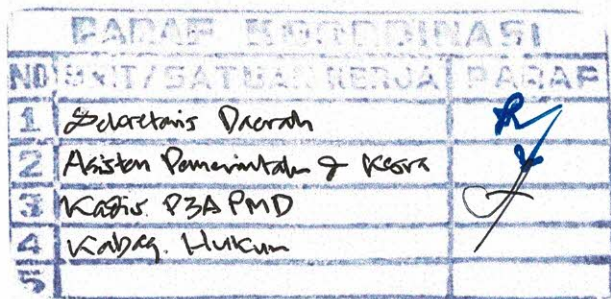 PARAF KOORDINASI
NO UNIT/SATUAN KERJA PARAF
1 Sekretaris Daerah
2 Asisten Pemerintahan & Kesra
3 Kadis P3APMD
4 Kabag. Hukum
5